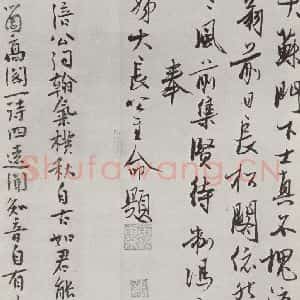 蘇門下士真不愧
翁前日長松閣依然
風前集賢待制馮
奉
姊大長公主命題
涪公詞翰氣橫秋自古如君能
高閣一詩四遠聞知音自有
Shufawang.CN